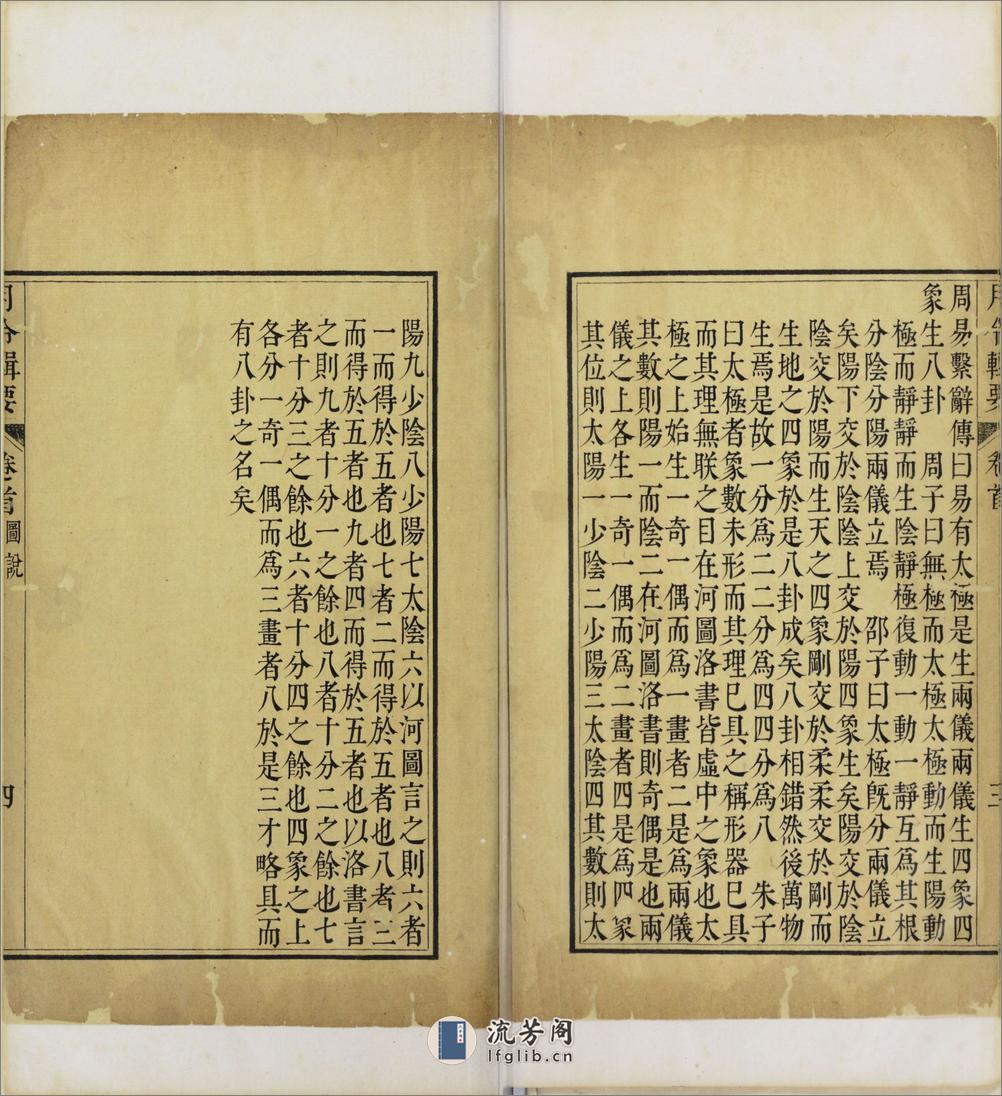 周易輯要 卷首 三
周易繫辭傳曰易有太極是生兩儀兩儀生四象四
象生八卦 周子曰無極而太極太極動而生陽動
極而靜靜而生陰靜極復動一動一靜互爲其根
分陰分陽兩儀立焉 邵子曰太極旣分兩儀立
矣陽下交於陰陰上交於陽四象生矣陽交於陰
陰交於陽而生天之四象剛交於柔柔交於剛而
生地之四象於是八卦成矣八卦相錯然後萬物
生焉是故一分爲二二分爲四四分爲八 朱子
曰太極者象數未形而其理已具之稱形器已具
而其理無联之目在河圖洛書皆虛中之象也太
極之上始生一奇一偶而爲一畫者二是爲兩儀
其數則陽一而陰二在河圖洛書則奇偶是也兩
儀之上各生一奇一偶而爲二畫者四是爲四象
其位則太陽一少陰二少陽三太陰四其數則太
陽九少陰八少陽七太陰六以河圖言之則六者
一而得於五者也七者二而得於五者也八者三
而得於五者也九者四而得於五者也以洛書言
之則九者十分一之餘也八者十分二之餘也七
者十分三之餘也六者十分四之餘也四象之上
各分一奇一偶而爲三畫者八於是三才略具而
有八卦之名矣
周易輯要 卷首 圖說 四
流芳阁
lfglib.cn